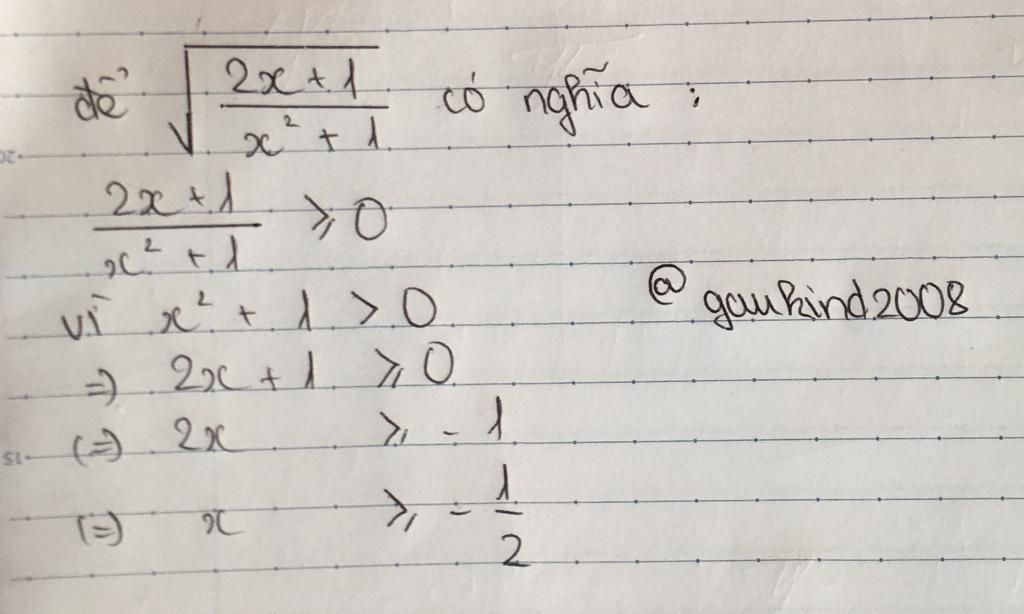 để √((2x + 1)/(x² + 1)) có nghĩa :
(2x + 1)/(x² + 1) ⩾ 0
vì x² + 1 > 0
@gaukind2008
=) 2x + 1 ⩾ 0
(=) 2x ⩾ - 1
(=) x ⩾ - 1/2